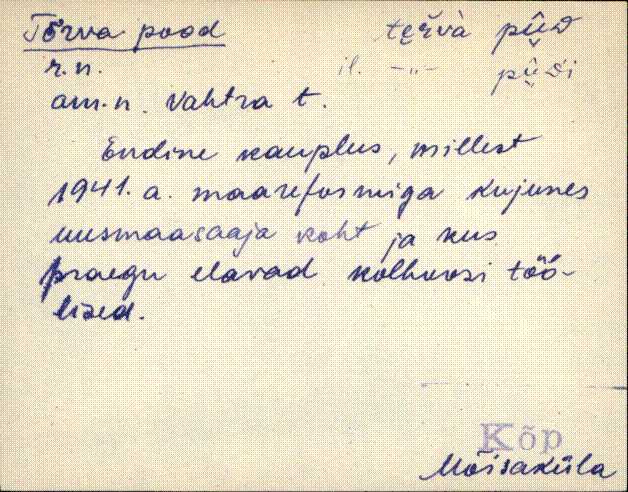 Tõrva pood tɛrvà pûd
r.n. il. -"- pûdi
am.n. Vahtra t.
Endine kauplus, millest
1941. a. maareformiga kujunes
uusmaasaaja koht ja kus
praegu elavad kolhoosi töö-
lised.
Kõp
Mõisaküla